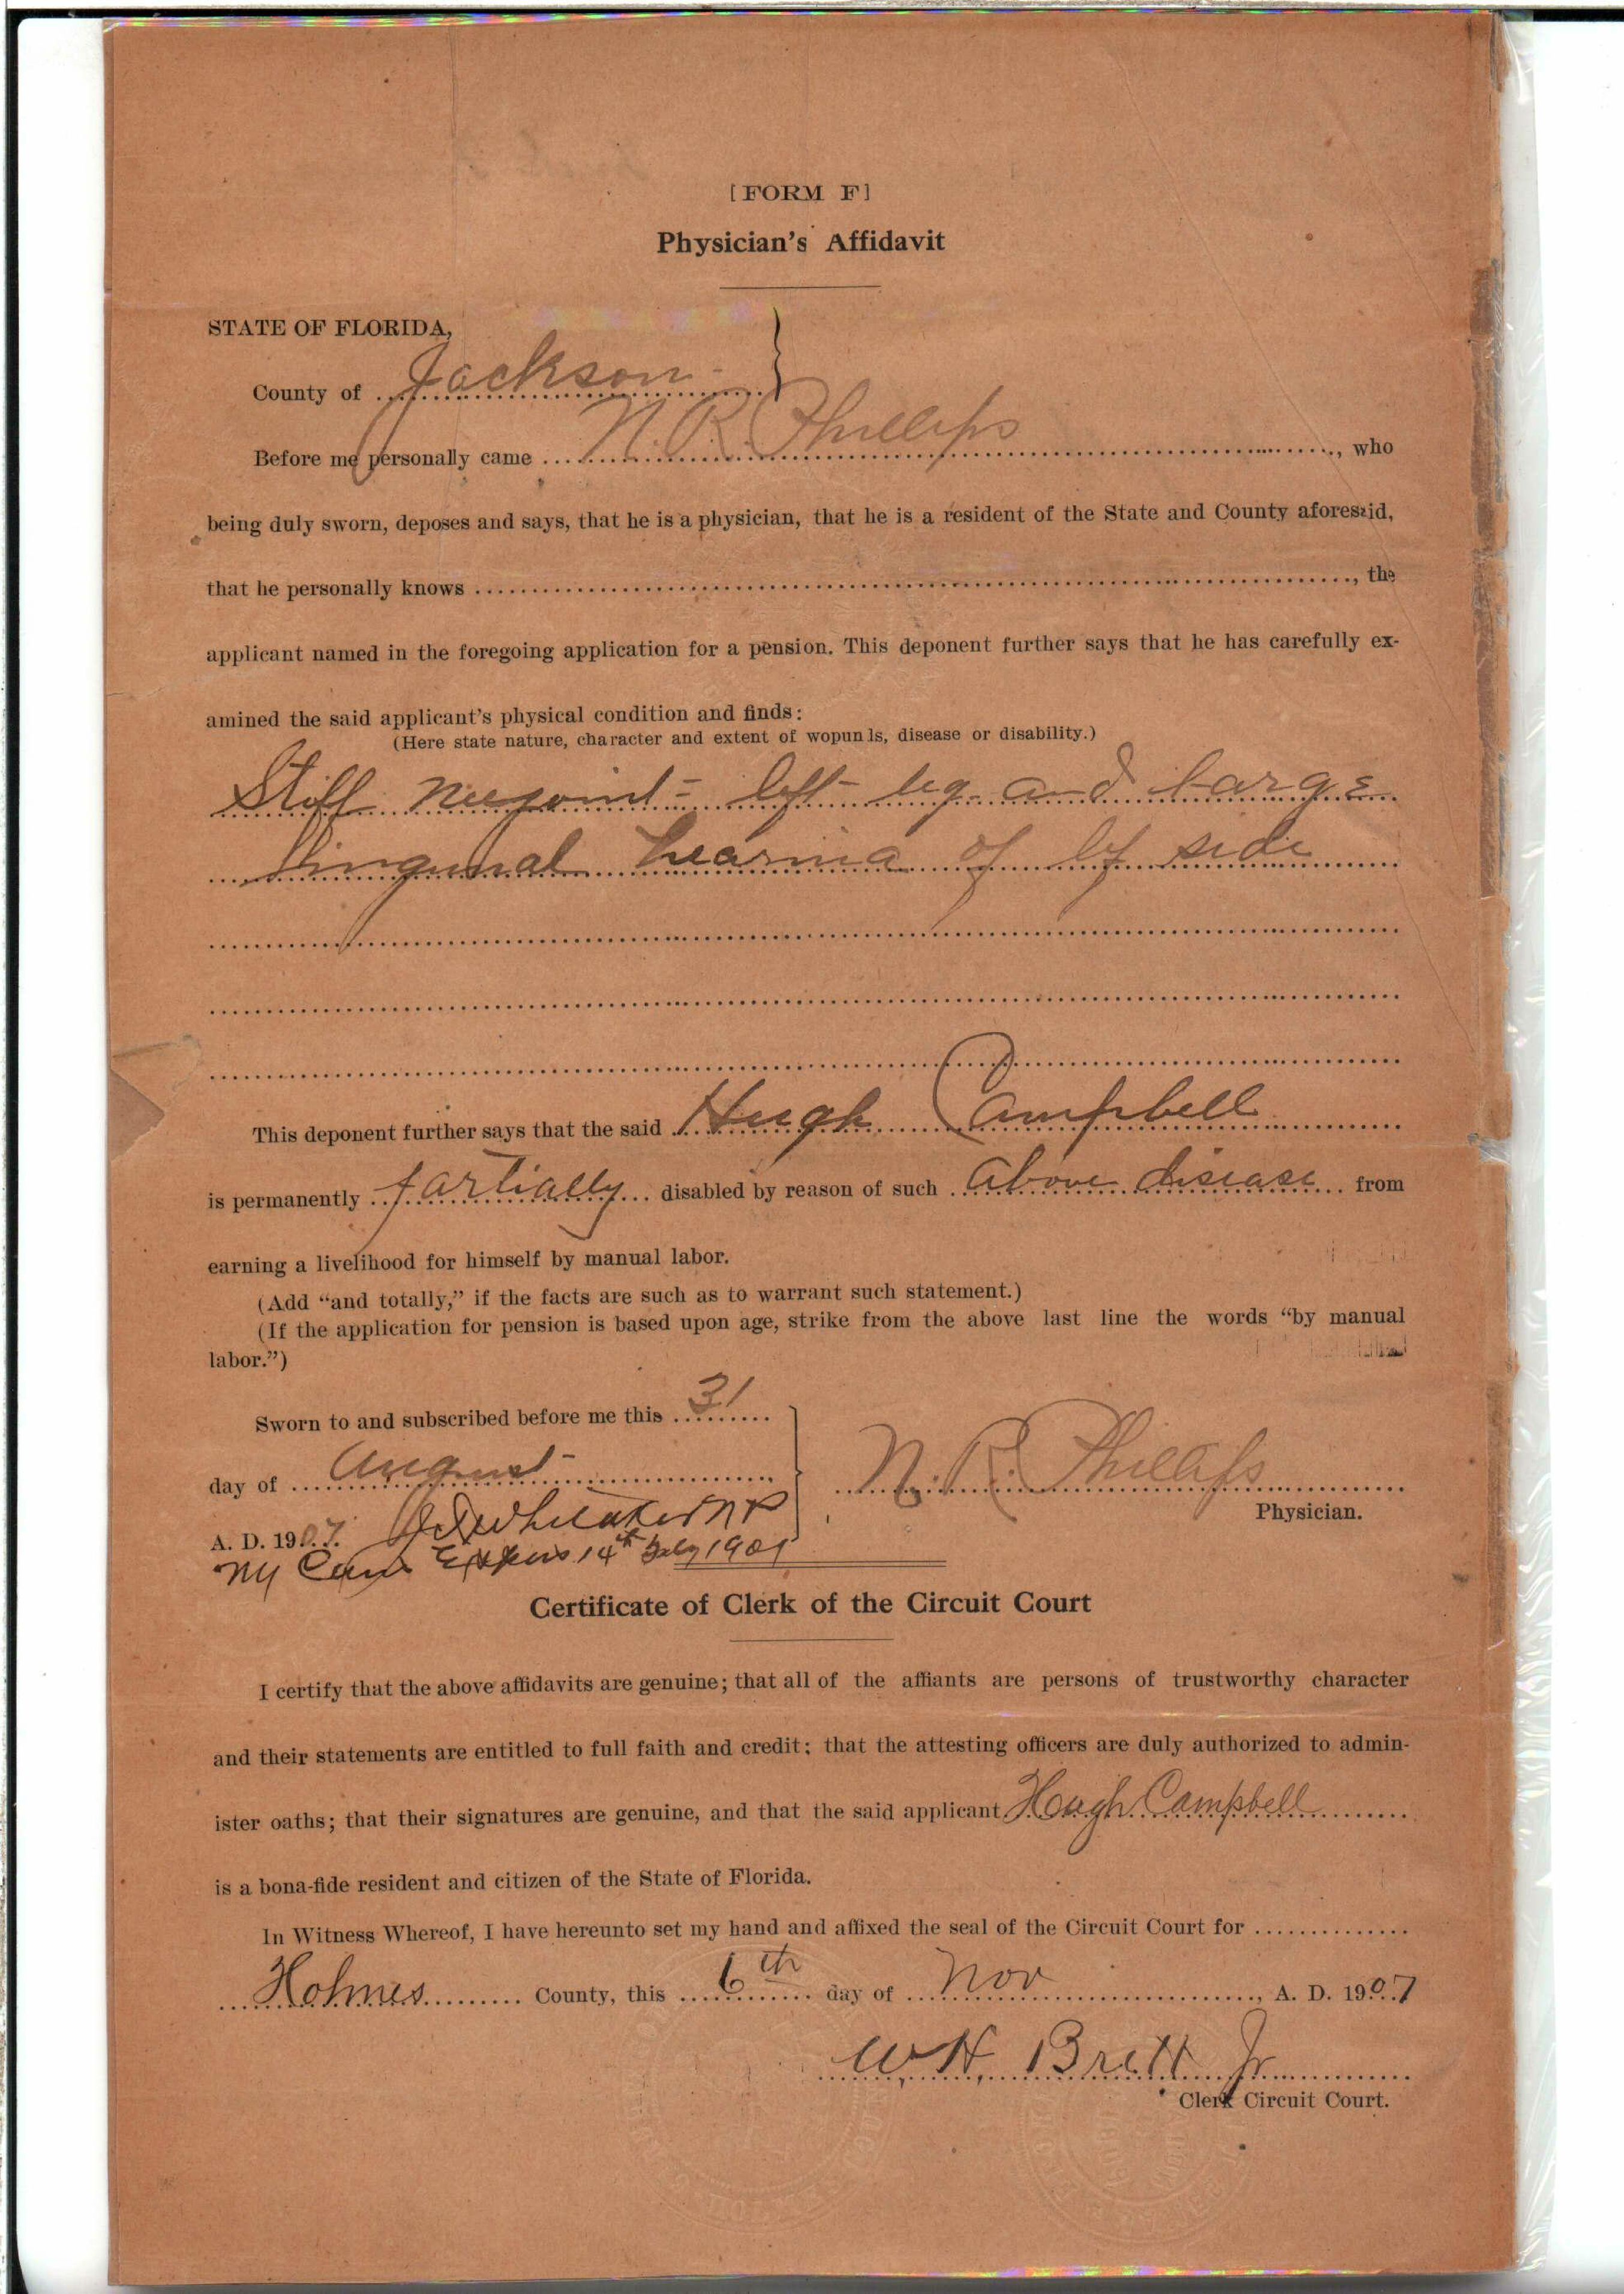 [FORM F]
Physician's Affidavit
STATE OF FLORIDA,
County of Jackson
Before me personally came N. R. Phillips, who
being duly sworn, deposes and says, that he is a physician, that he is a resident of the State and County aforesaid,
that he personally knows, the
applicant named in the foregoing application for a pension. This deponent further says that he has carefully ex-
amined the said applicant's physical condition and finds:
(Here state nature, character and extent of wopunls, disease or disability.)
Stiff neejoint- left leg and large
hearnia of lef side
This deponent further says that the said Hugh Campbell
is permanently partially disabled by reason of such above disease from
earning a livelihood for himself by manual labor.
(Add "and totally," if the facts are such as to warrant such statement.)
(If the application for pension is based upon age, strike from the above last line the words "by manual
labor.")
Sworn to and subscribed before me this 31
day of August
A. D. 1907. Wheaker NP
N. R. Phillips
Physician.
My Com Expires 14th July 190
Certificate of Clerk of the Circuit Court
I certify that the above affidavits are genuine; that all of the affiants are persons of trustworthy character
and their statements are entitled to full faith and credit; that the attesting officers are duly authorized to admin-
ister oaths; that their signatures are genuine, and that the said applicant Hugh Campbell
is a bona-fide resident and citizen of the State of Florida.
In Witness Whereof, I have hereunto set my hand and affixed the seal of the Circuit Court for
Holmes County, this 6th day of Nov, A. D. 1907
W. H. Brett Jr
Clerk Circuit Court.